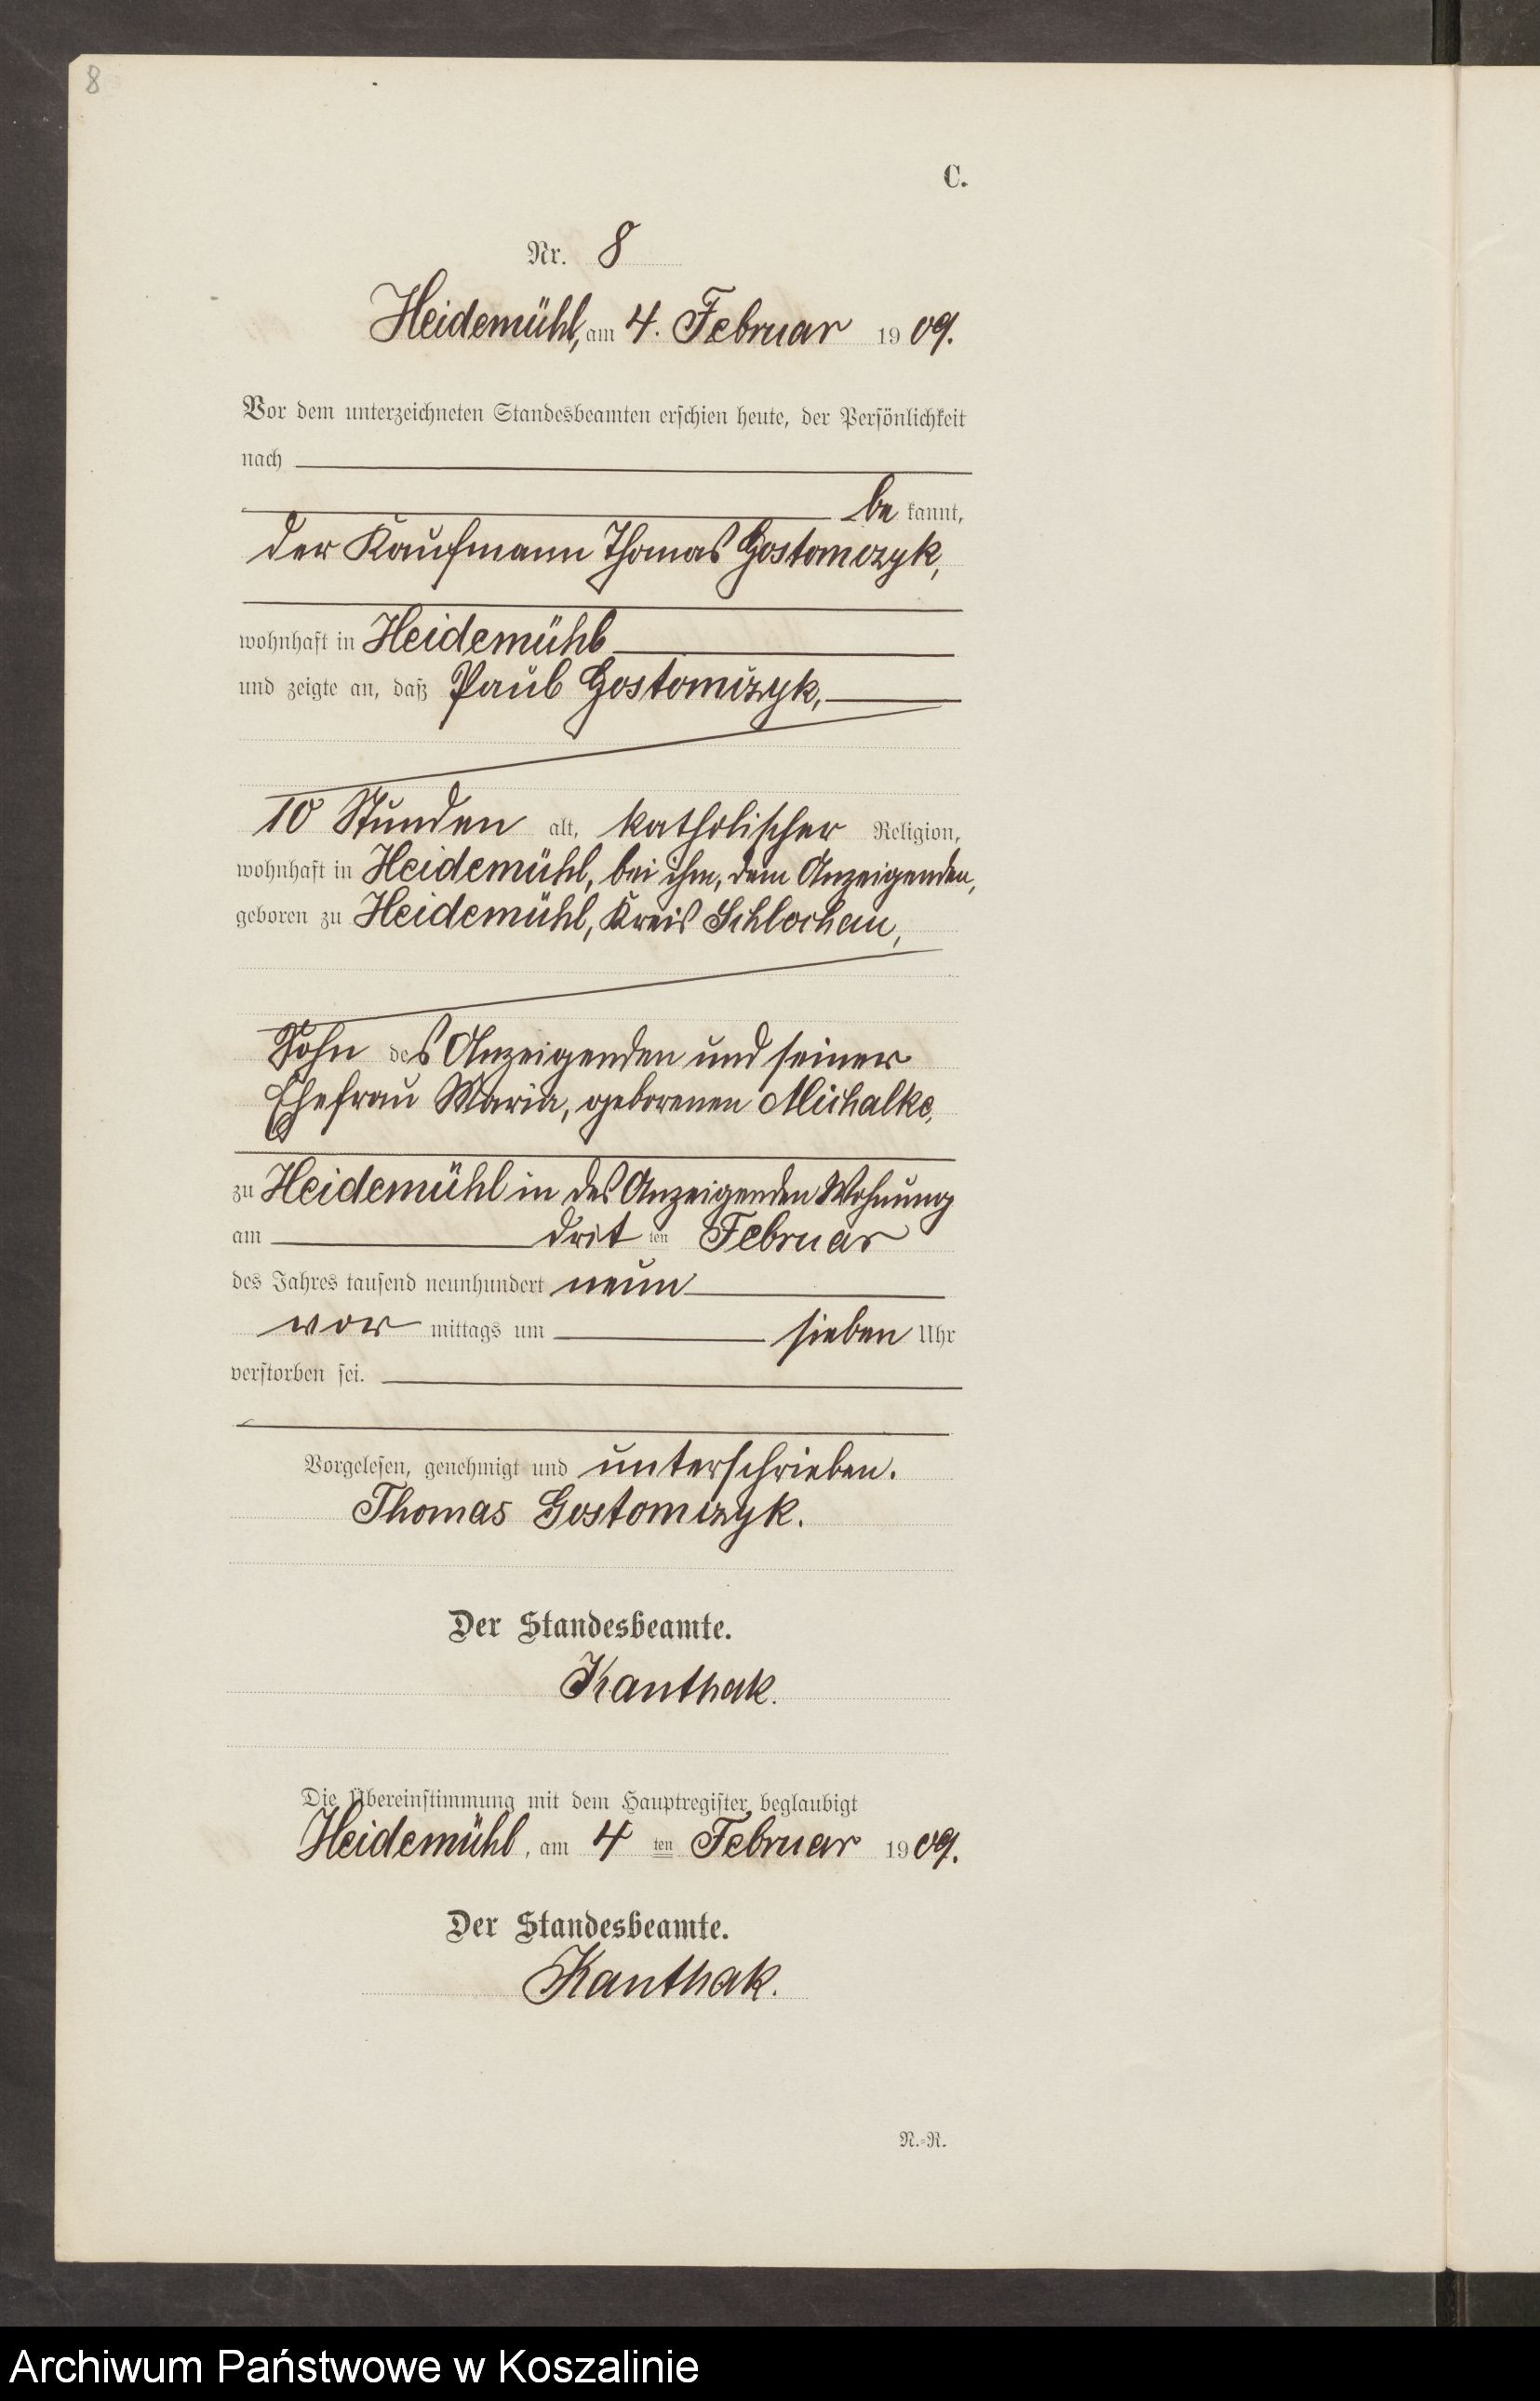 8
C.
Nr. 8
Heidemühl, am 4. Februar 1909.
Vor dem unterzeichneten Standesbeamten erschien heute, der Persönlichkeit
nach
be kannt,
der Kaufmann Thomas Gostomczyk,
wohnhaft in Heidemühl
und zeigte an, daß Paul Gostomczyk,
10 Stunden alt, katholischer Religion,
wohnhaft in Heidemühl, bei ihm, dem Anzeigenden,
geboren zu Heidemühl, Kreis Schlochau,
Sohn des Anzeigenden und seiner
Ehefrau Maria, geborenen Michalke,
zu Heidemühl in des Anzeigenden Wohnung
am dritten Februar
des Jahres tausend neunhundert neun
vor mittags um sieben Uhr
verstorben sei.
Vorgelesen, genehmigt und unterschrieben.
Thomas Gostomczyk.
Der Standesbeamte.
Kanthak.
Die Übereinstimmung mit dem Hauptregister beglaubigt
Heidemühl, am 4 ten Februar 1909.
Der Standesbeamte.
Kanthak.
N.-R.
Archiwum Państwowe w Koszalinie